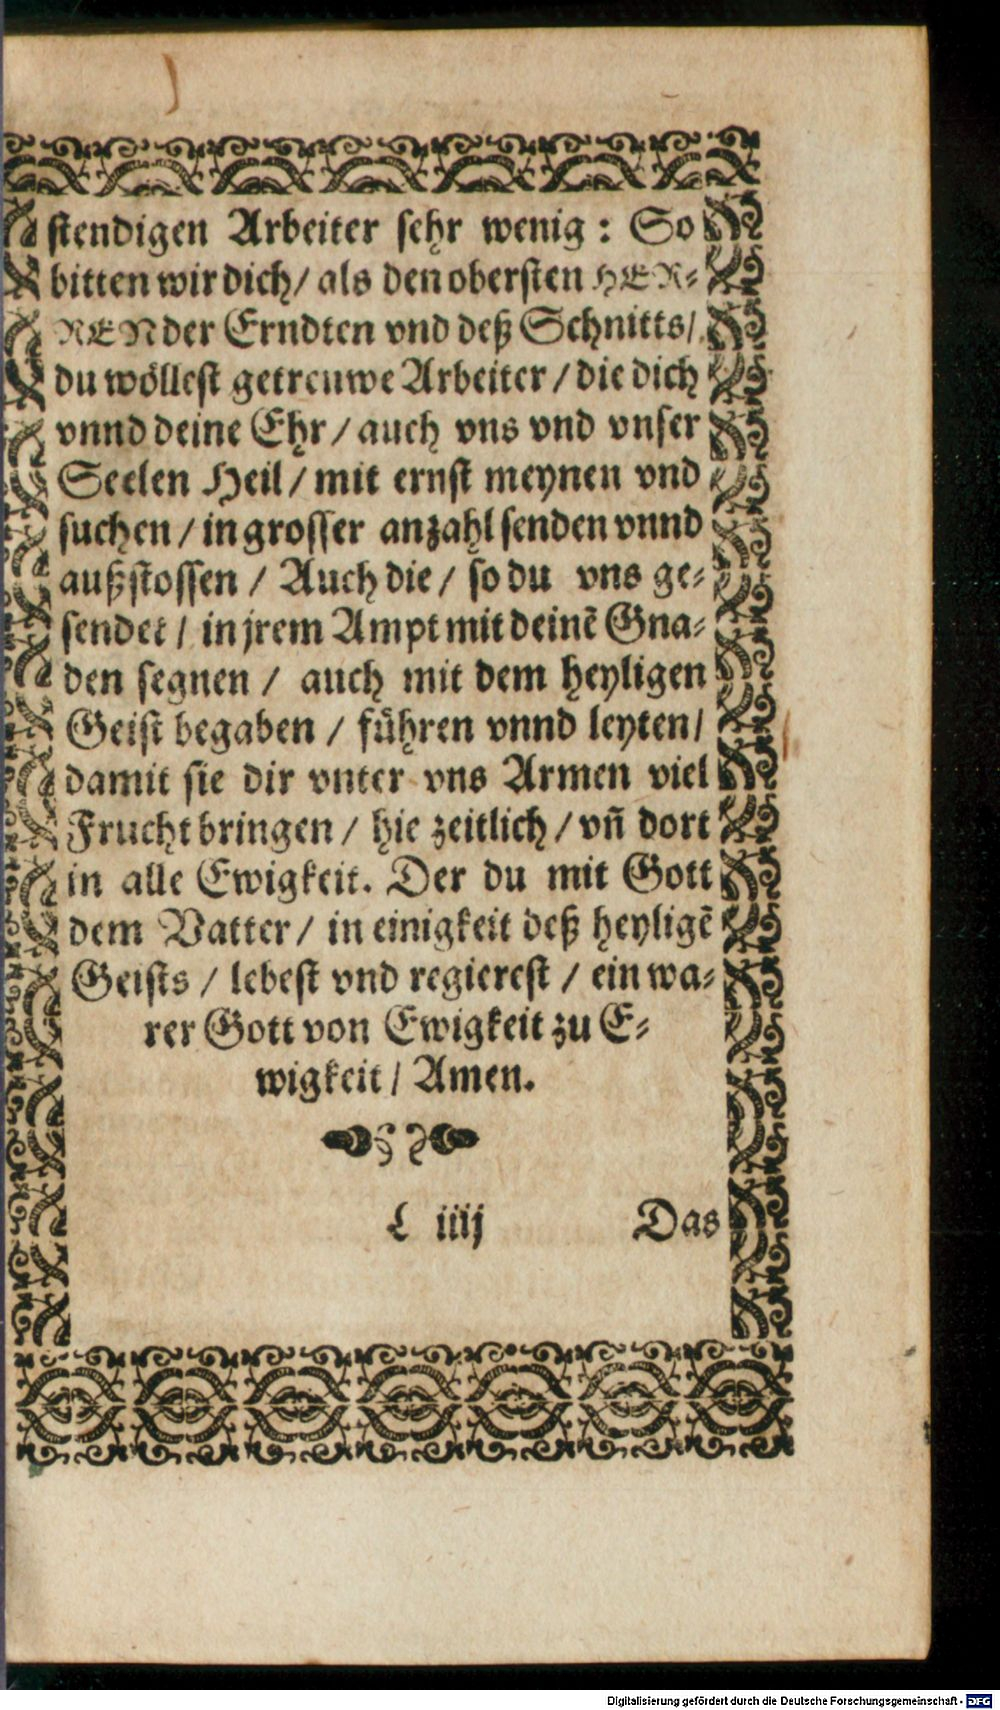 stendigen Arbeiter sehr wenig: So
bitten wir dich/ als den obersten HER-
REN der Erndten vnd deß Schnitts/
du wöllest getreuwe Arbeiter / die dich
vnnd deine Ehr / auch vns vnd vnser
Seelen Heil / mit ernst meynen vnd
suchen / in grosser anzahl senden vnnd
außstossen / Auch die / so du vns ge-
sendet / in jrem Ampt mit deinẽ Gna-
den segnen / auch mit dem heyligen
Geist begaben / führen vnnd leyten/
damit sie dir vnter vns Armen viel
Frucht bringen / hie zeitlich / vñ dort
in alle Ewigkeit. Der du mit Gott
dem Vatter / in einigkeit deß heyligẽ
Geists / lebest vnd regierest / ein wa-
rer Gott von Ewigkeit zu E-
wigkeit / Amen.
L iiij Das
Digitalisierung gefördert durch die Deutsche Forschungsgemeinschaft - DFG